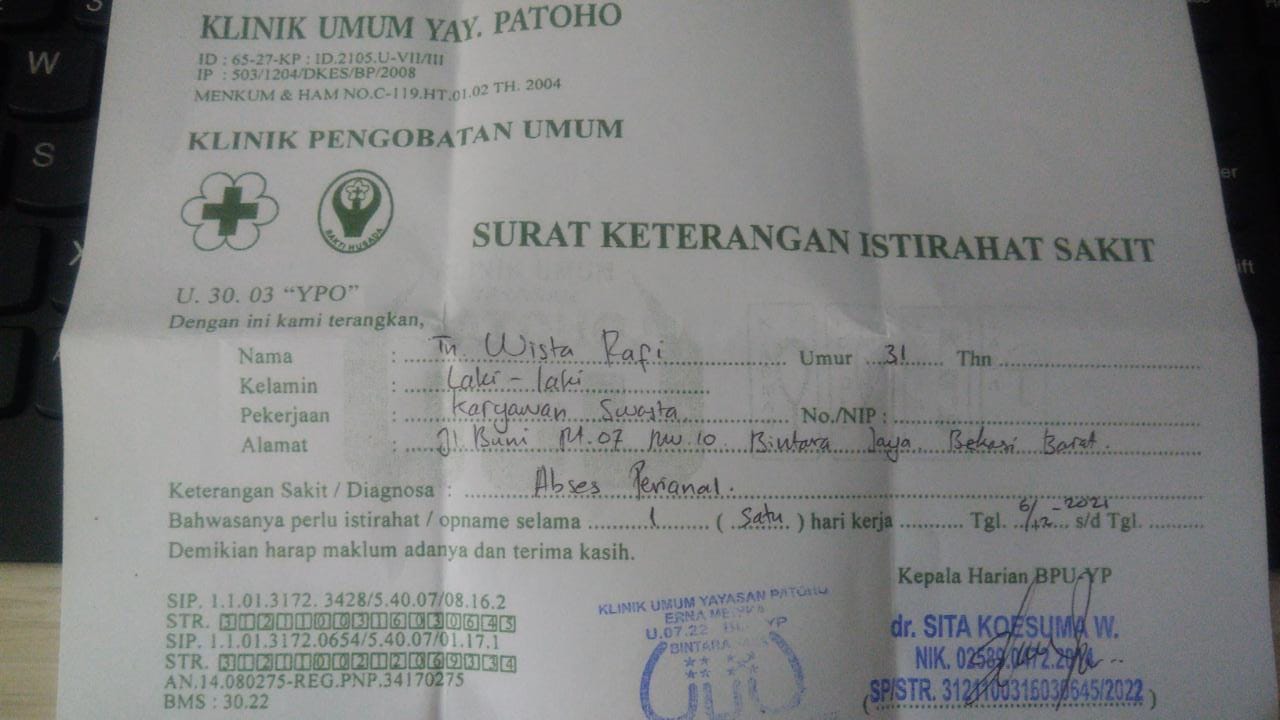 KLINIK UMUM YAY. PATOHO
ID : 65-27-KP : ID.2105.U-VII/III
IP : 503/1204/DKES/BP/2008
MENKUM & HAM NO.C-119.HT.01.02 TH. 2004
KLINIK PENGOBATAN UMUM
BAKTI HUSADA
SURAT KETERANGAN ISTIRAHAT SAKIT
U. 30. 03 "YPO"
Dengan ini kami terangkan,
Nama : Tn. Wista Rafi Umur 31 Thn
Kelamin : Laki - laki
Pekerjaan : Karyawan Swasta No./NIP :
Alamat : Jl. Buni Rt. 07 Rw. 10 Bintara Jaya Bekasi Barat.
Keterangan Sakit / Diagnosa : Abses Perianal.
Bahwasanya perlu istirahat / opname selama 1 ( Satu ) hari kerja Tgl. 6/12-2021 s/d Tgl.
Demikian harap maklum adanya dan terima kasih.
Kepala Harian BPU-YP
SIP. 1.1.01.3172. 3428/5.40.07/08.16.2
STR. 3121100316030645
SIP. 1.1.01.3172.0654/5.40.07/01.17.1
STR.
AN.14.080275-REG.PNP.34170275
BMS : 30.22
KLINIK UMUM YAYASAN PATOHO
ERNA
U.07.22 YP
BINTARA
dr. SITA KOESUMA W.
NIK.
(SP/STR. 3121100316030645/2022 )